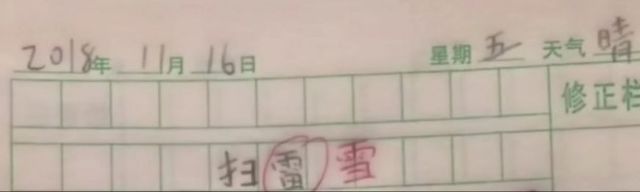 2018年 11月 16日 星期 五 天气 晴
修正栏
扫雷 雪